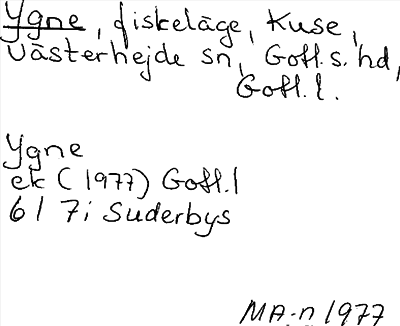 Ygne, fiskeläge, Kuse,
Västerhejde sn, Gotl.s.hd,
Gotl.l.
Ygne
ek (1977) Gotl.l
6I 7i Suderbys
MA-n 1977